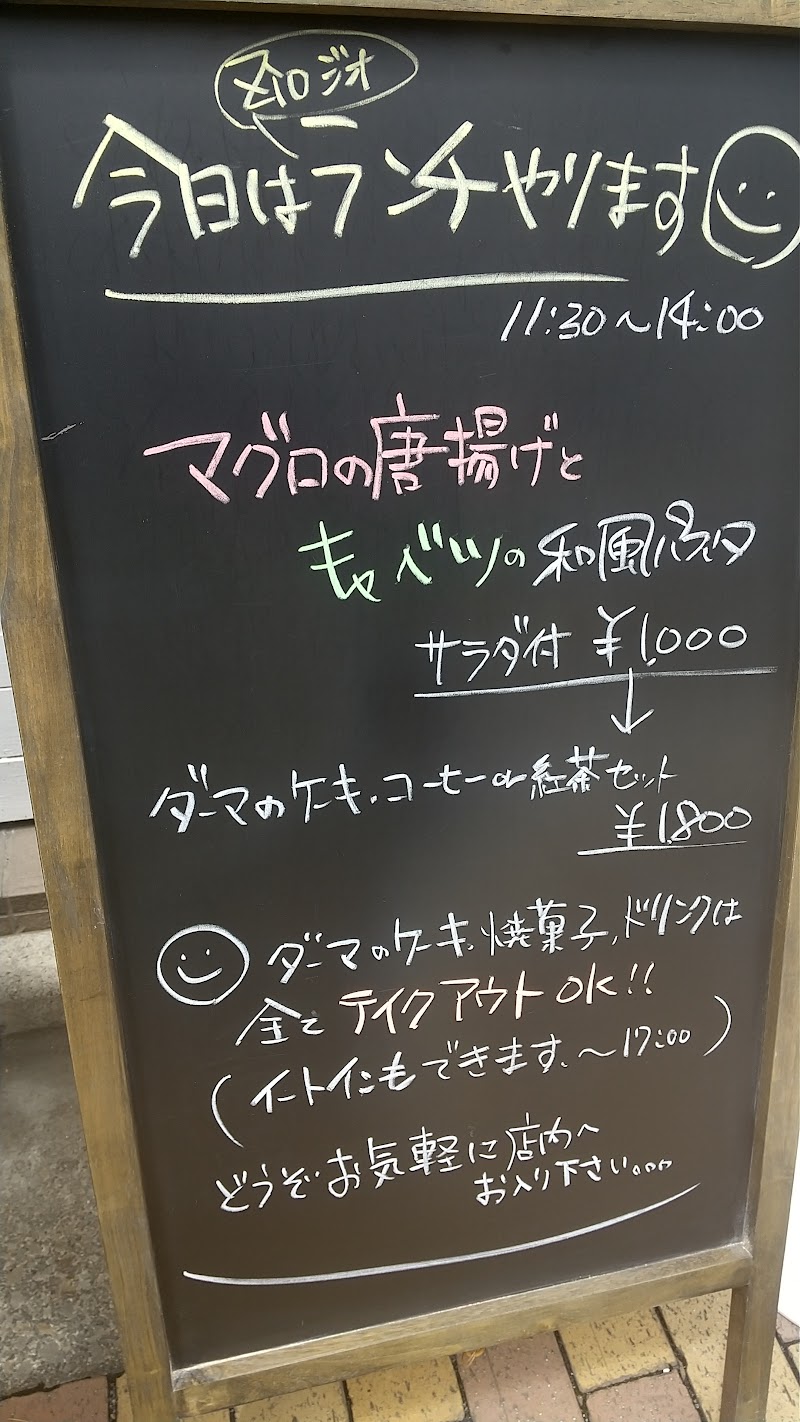 今日はランチやります
11:30～14:00
マグロの唐揚げと
キャベツの和風パスタ
サラダ付 ¥1,000
ダーマのケーキ・コーヒーor紅茶セット
¥1,800
ダーマのケーキ、焼菓子、ドリンクは
全てテイクアウトOK!!
(イートインもできます、～17:00)
どうぞお気軽に店内へ
お入り下さい。。。